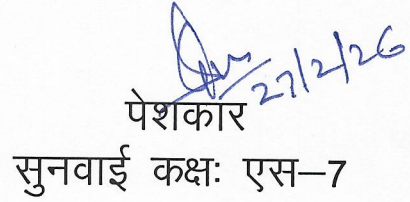 27/2/26
पेशकार
सुनवाई कक्षः एस–7